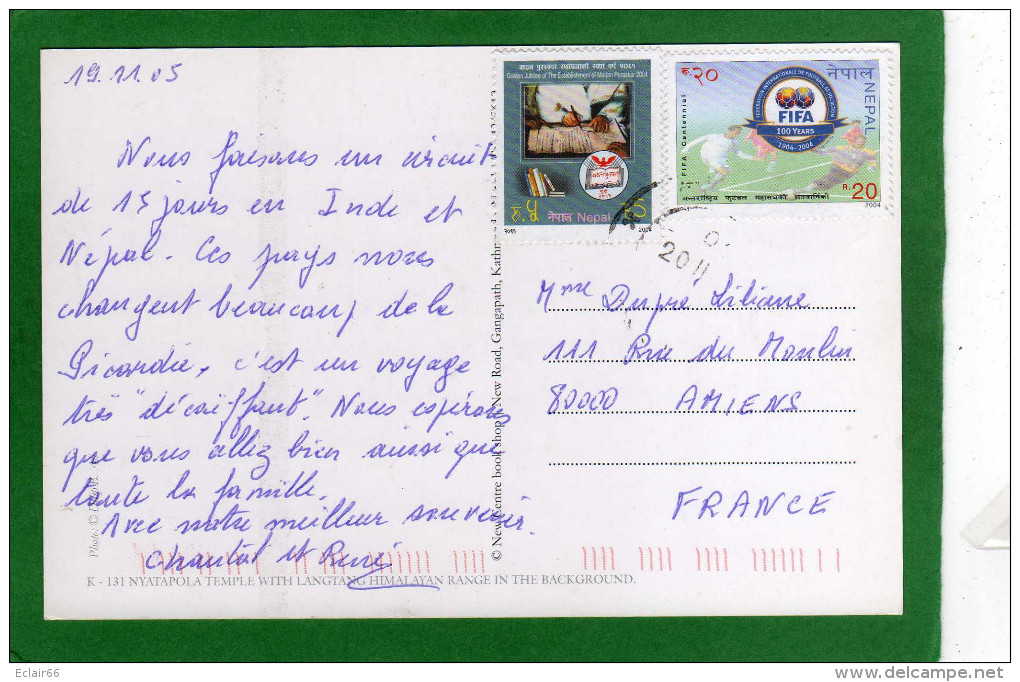 19.11.05
Nous faisons un circuit
de 15 jours en Inde et
Népal. Ces pays nous
changent beaucoup de la
Picardie, c'est un voyage
très "décoiffant". Nous espérons
que vous allez bien ainsi que
toute la famille.
Avec notre meilleur souvenir.
Chantal et René
K - 131 NYATAPOLA TEMPLE WITH LANGTANG HIMALAYAN RANGE IN THE BACKGROUND.
Photo: ©
© New Centre book shop, New Road, Gangapath, Kathm
मदन पुरस्कार स्थापनाको स्वर्ण वर्ष २०६१
Golden Jubilee of The Establishment of Madan Puraskar 2004
रु.५
नेपाल Nepal
२०६१
2004
रु.२०
नेपाल
NEPAL
FIFA Centennial
FEDERATION INTERNATIONALE DE FOOTBALL ASSOCIATION
FIFA
100 YEARS
1904-2004
R.20
अन्तर्राष्ट्रिय फुटबल महासंघको शतवार्षिकी
2004
2011
Mme Dupré Liliane
111 Rue du Moulin
80000 AMIENS
FRANCE
Eclair66
www.delcampe.net